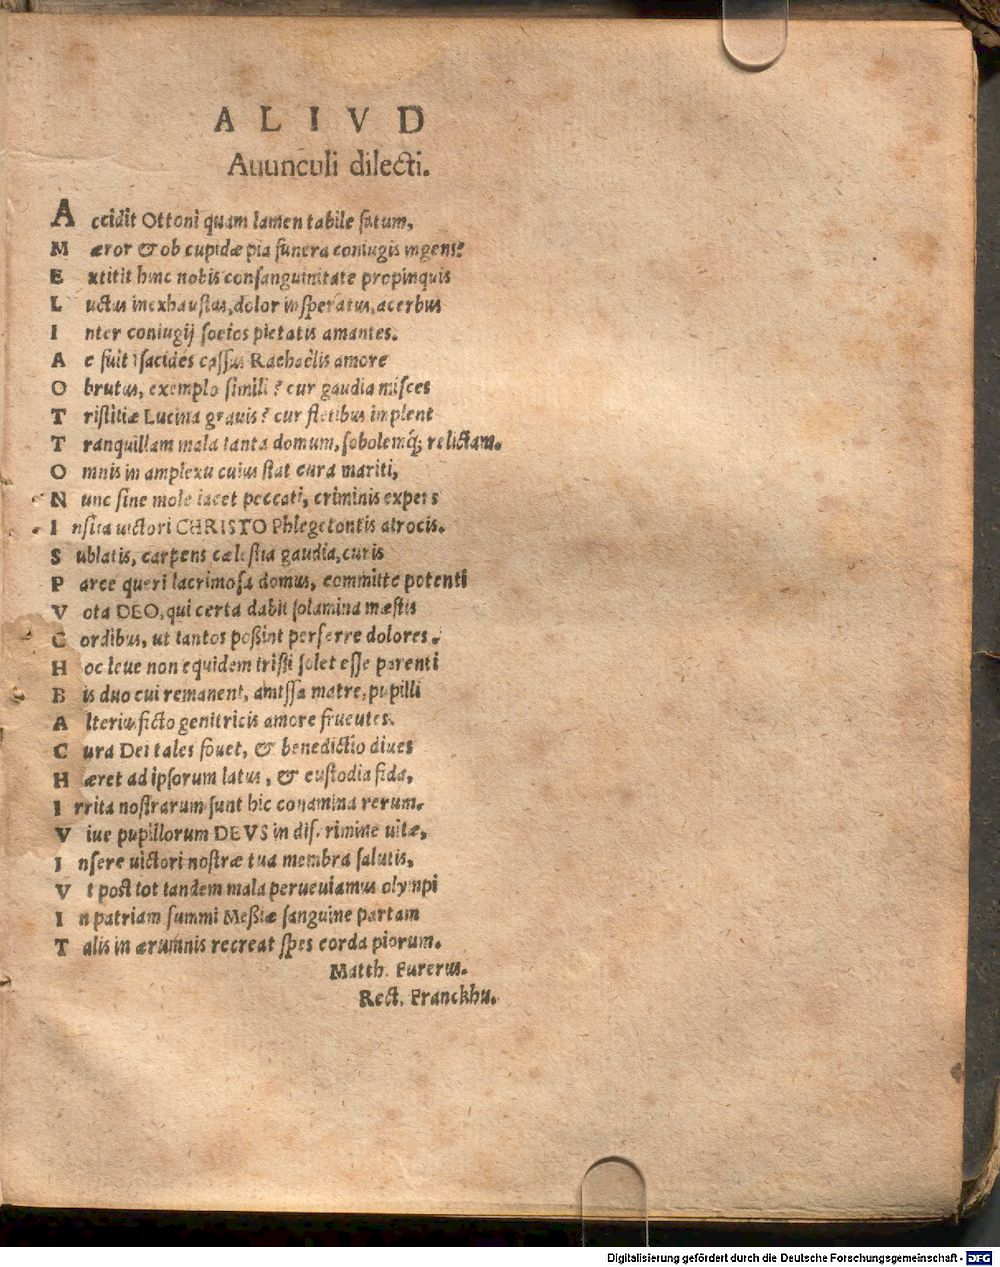 ALIVD
Auunculi dilecti.
Accidit Ottoni quam lamen tabile fatum,
Mæror & ob cupidæ pia funera coniugis ingens?
Extitit hinc nobis consanguinitate propinquis
Luctus inexhaustus, dolor insperatus, acerbus
Inter coniugij socios pietatis amantes.
Ac fuit Isacides cassus Rachaëlis amore
Obrutus, exemplo simili? cur gaudia misces
Tristitiæ Lucina grauis? cur fletibus implent
Tranquillam mala tanta domum, sobolemq́; relictam.
Omnis in amplexu cuius stat cura mariti,
Nunc sine mole iacet peccati, criminis expers
Insita uictori CHRISTO Phlegetontis atrocis.
Sublatis, carpens cælestia gaudia, curis
Parce queri lacrimosa domus, committe potenti
Vota DEO, qui certa dabit solamina mæstis
Cordibus, ut tantos poßint perferre dolores.
Hoc leue non equidem tristi solet esse parenti
Bis duo cui remanent, amissa matre, pupilli
Alterius ficto genitricis amore fruentes.
Cura Dei tales fouet, & benedictio diues
Hæret ad ipsorum latus, & custodia fida,
Irrita nostrarum sunt hic conamina rerum.
Viue pupillorum DEVS in discrimine uitæ,
Insere uictori nostræ tua membra salutis,
Vt post tot tandem mala perueniamus olympi
In patriam summi Meßiæ sanguine partam
Talis in ærumnis recreat spes corda piorum.
Matth. Furerus.
Rect. Franckhu.
Digitalisierung gefördert durch die Deutsche Forschungsgemeinschaft - DFG